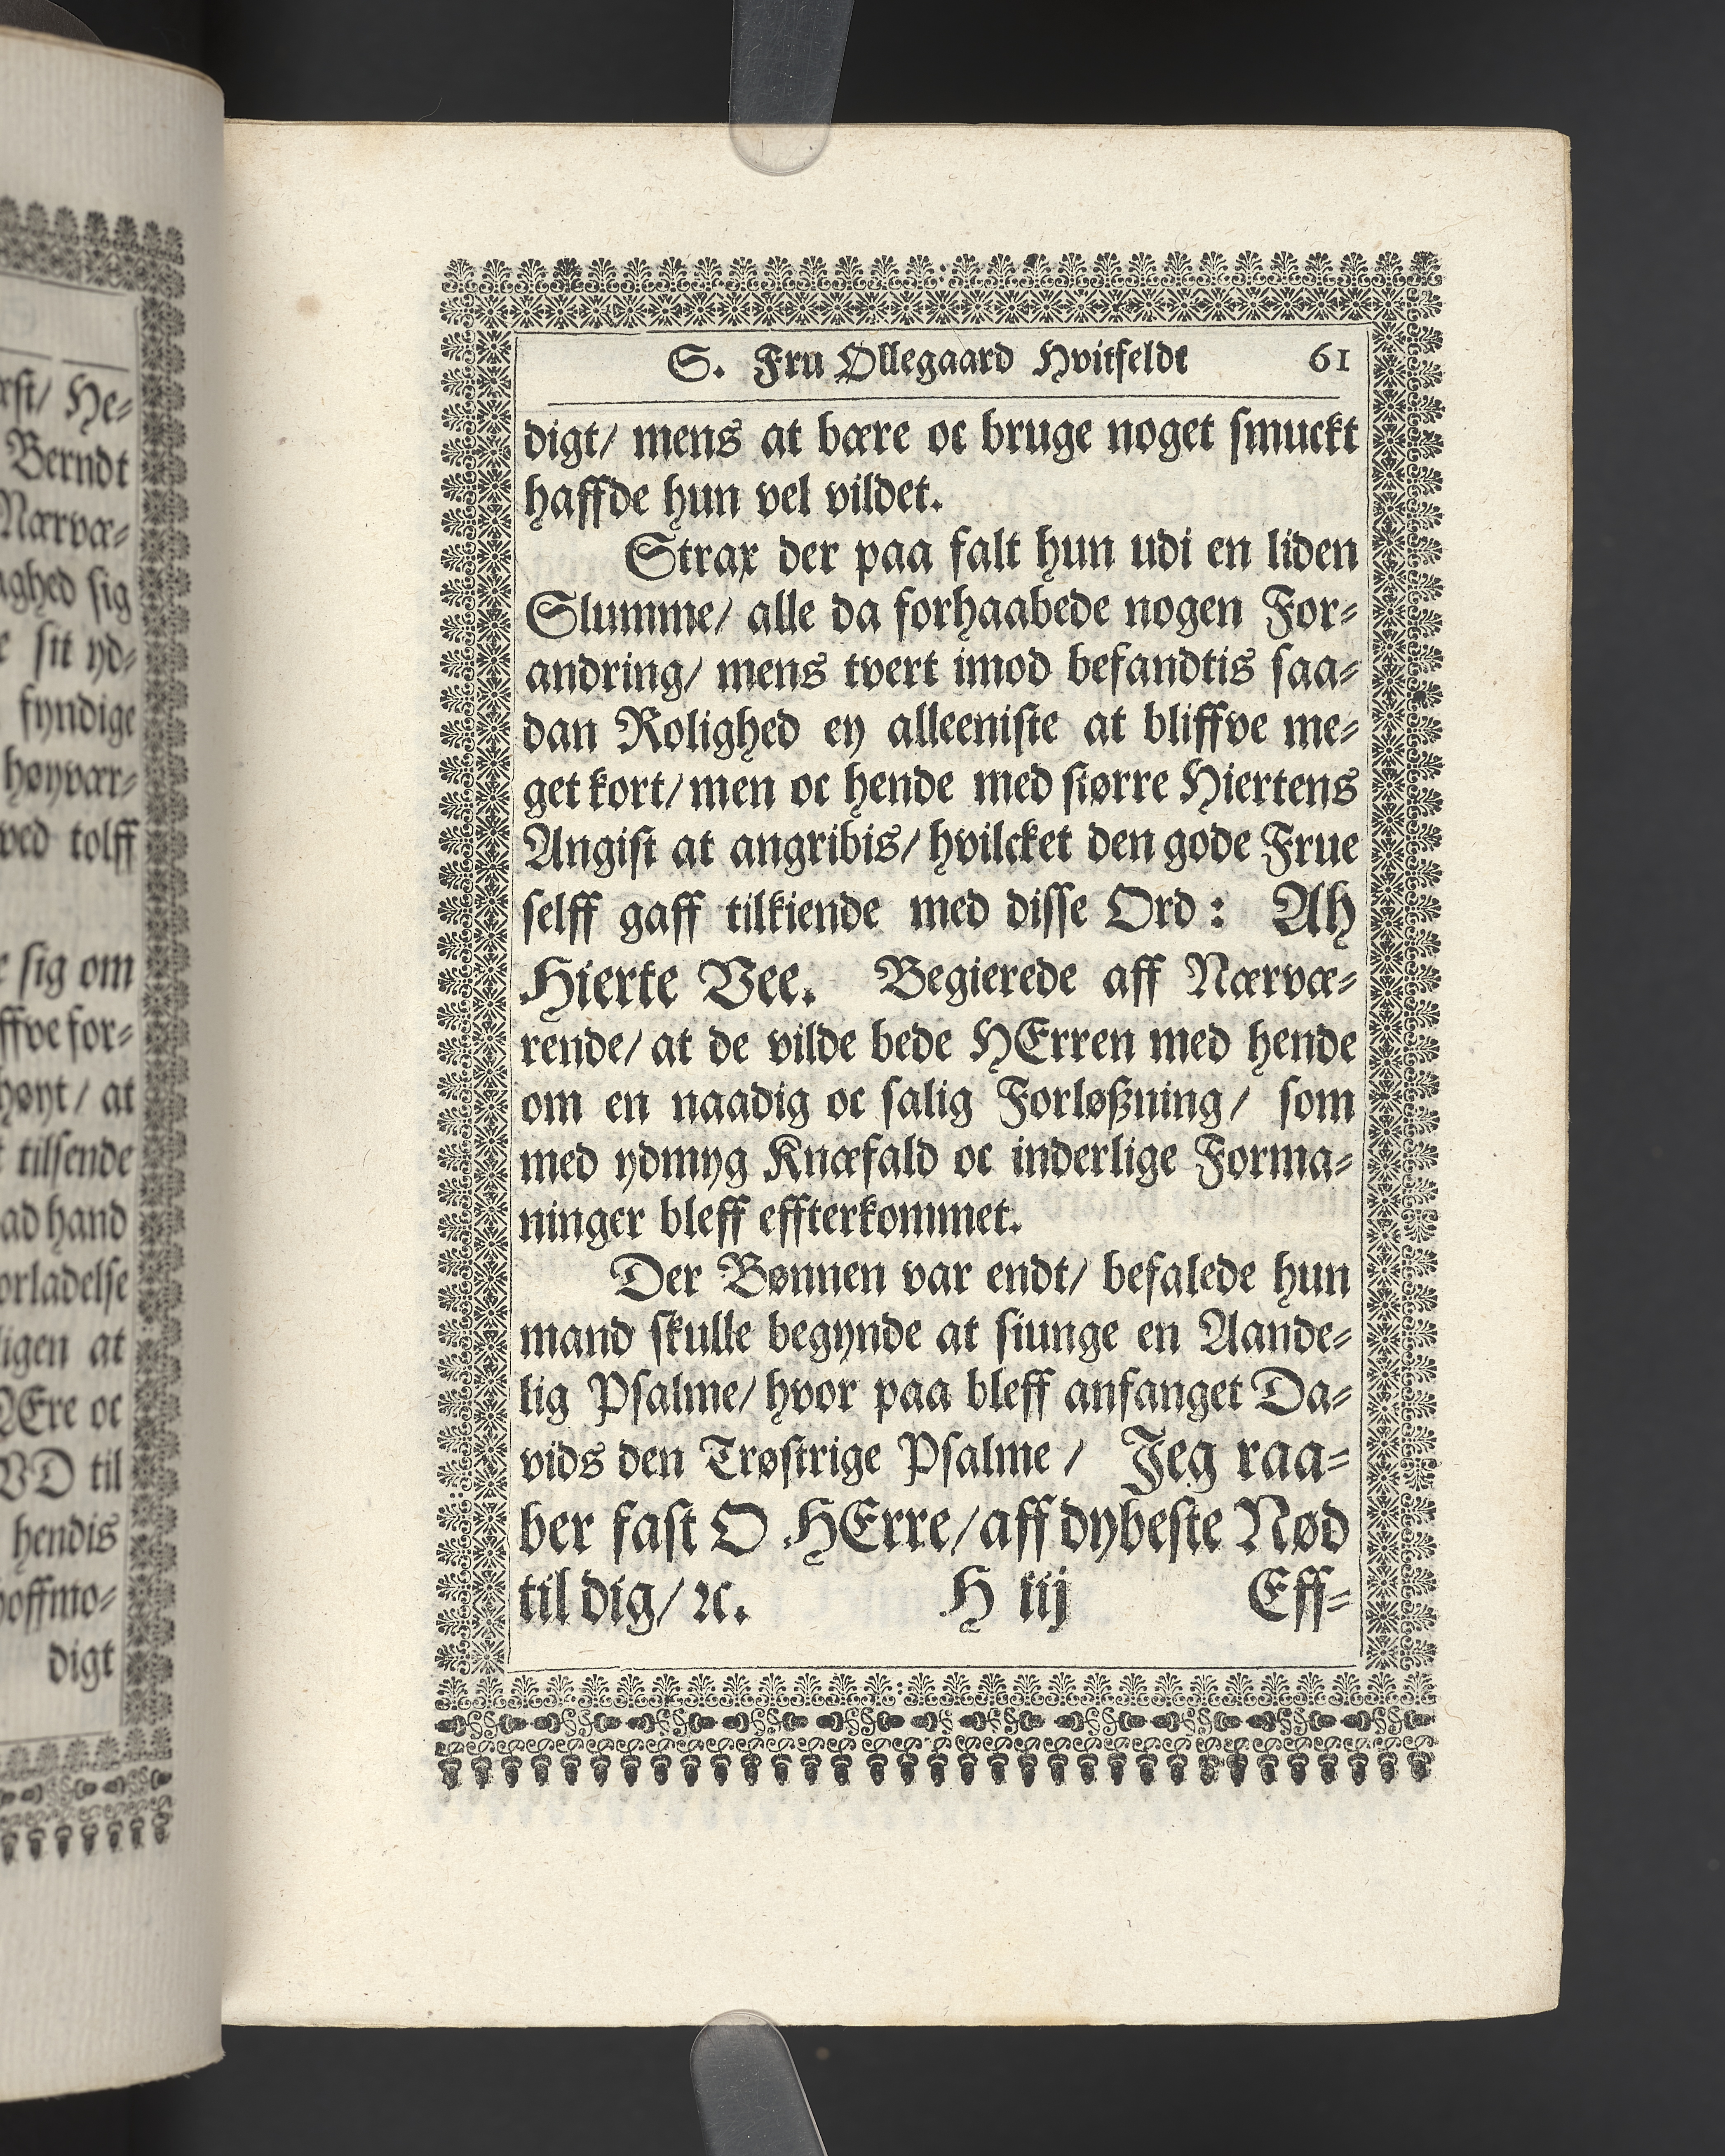 rst/ He-
Berndt
Nærvæ-
aghed sig
sit yd-
fyndige
høyvær-
ved tolff
sig om
ffve for-
høyt / at
tilsende
ad hand
orladelse
igen at
ÆEre oc
VD til
hendis
hoffmo-
digt
S. Fru Ollegaard Hvitfeldt 61
digt/ mens at bære oc bruge noget smuckt
haffde hun vel vildet.
Strax der paa falt hun udi en liden
Slumme/ alle da forhaabede nogen For-
andring/ mens tvert imod befandtis saa-
dan Rolighed ey alleeniste at bliffve me-
get kort/ men oc hende med større Hiertens
Angist at angribis/ hvilcket den gode Frue
selff gaff tilkiende med disse Ord : Ah
Hierte Vee. Begierede aff Nærvæ-
rende/ at de vilde bede HErren med hende
om en naadig oc salig Forløßning/ som
med ydmyg Knæfald oc inderlige Forma-
ninger bleff effterkommet.
Der Bønnen var endt/ befalede hun
mand skulle begynde at siunge en Aande-
lig Psalme/ hvor paa bleff anfanget Da-
vids den Trøstrige Psalme / Jeg raa-
ber fast O HErre/ aff dybeste Nød
til dig/ ꝛc. H iij Eff-